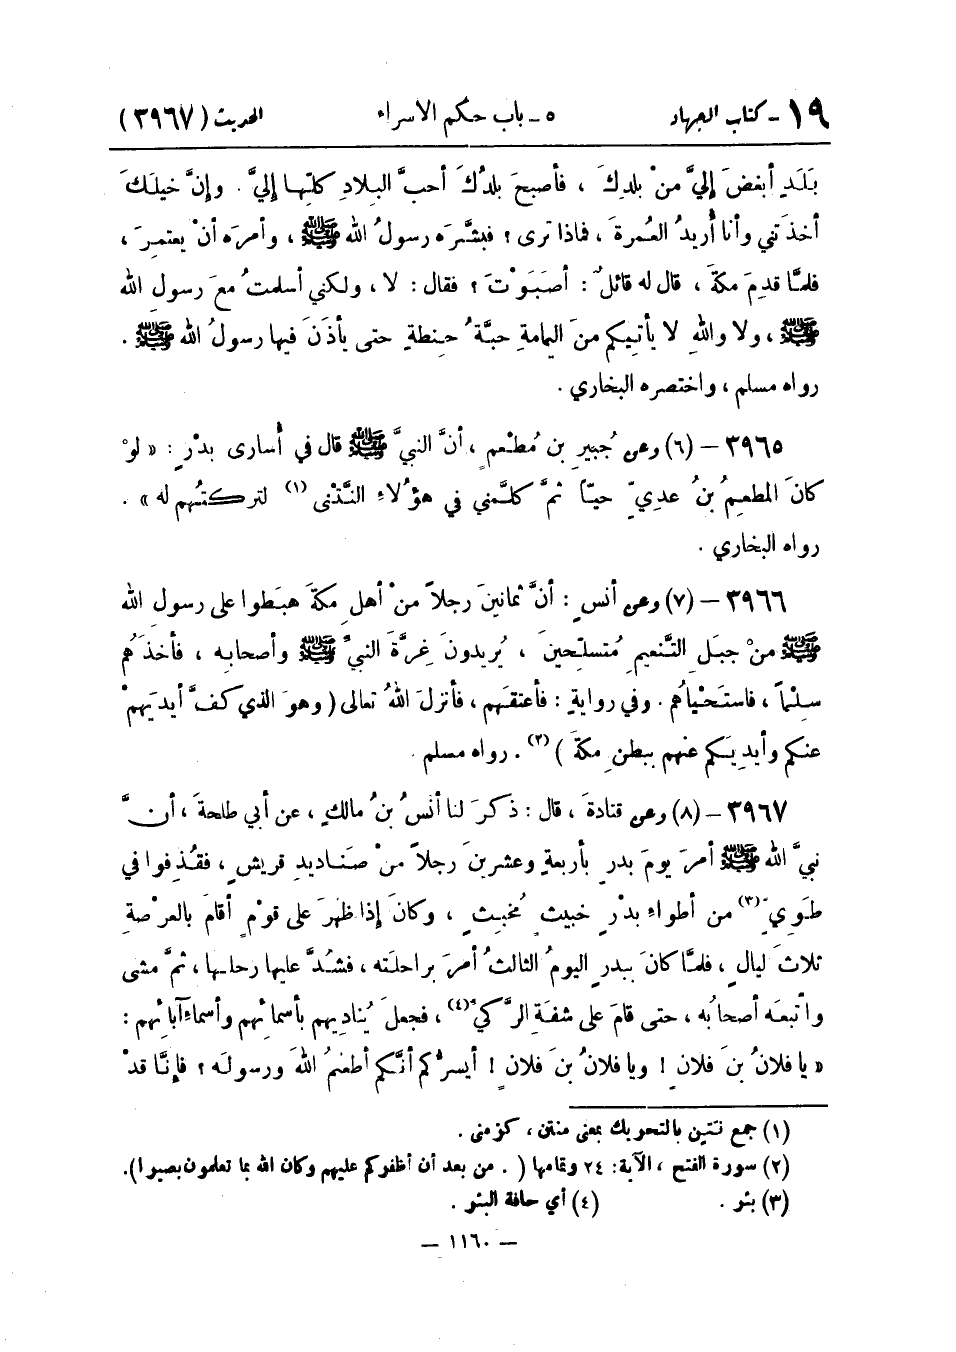 ١٩ - كتاب الجهاد ٥ - باب حكم الاسراء الحديث (٣٩٦٧)
بَلَدٍ أبغضَ إليَّ منْ بلدِكَ ، فأصبحَ بلدُكَ أحبَّ البلادِ كلّها إليَّ . وإنَّ خيلَكَ
أخذَتني وأنا أُريدُ العُمرةَ ، فماذا ترى ؟ فبشَّرَه رسولُ الله ﷺ ، وأمرَه أنْ يعتمِرَ ،
فلمَّا قدِمَ مكةَ ، قال له قائلٌ : أصَبَوْتَ ؟ فقال : لا ، ولكني أسلمتُ معَ رسولِ الله
ﷺ ، ولا واللهِ لا يأتيكم منَ اليمامةِ حبَّةُ حِنطةٍ حتى يأذَنَ فيها رسولُ الله ﷺ .
رواه مسلم ، واختصره البخاري .
٣٩٦٥ - (٦) وعن جُبيرِ بن مُطْعمٍ ، أنَّ النبيَّ ﷺ قال في أُسارى بدْرٍ : « لوْ
كانَ المطعِمُ بنُ عديّ حيّاً ثمَّ كلَّمني في هؤُلاءِ النَّتْنى (١) لتركتُهم له » .
رواه البخاري .
٣٩٦٦ - (٧) وعن أنسٍ : أنَّ ثمانينَ رجلاً منْ أهلِ مكةَ هبَطوا على رسولِ الله
ﷺ منْ جبَلِ التَّنعيمِ مُتسلّحينَ ، يُريدونَ غِرَّةَ النبيِّ ﷺ وأصحابِه ، فأخذَهُم
سِلْماً ، فاستَحْياهُم . وفي روايةٍ : فأعتقَهم ، فأنزلَ اللهُ تعالى ( وهوَ الذي كفَّ أيديَهمْ
عنكم وأيدِيَكم عنهم ببطنِ مكةَ ) (٢) . رواه مسلم .
٣٩٦٧ - (٨) وعن قتادةَ ، قال : ذكرَ لنا أنَسُ بنُ مالكٍ ، عن أبي طلحةَ ، أنَّ
نبيَّ الله ﷺ أمرَ يومَ بدرٍ بأربعةٍ وعشرينَ رجلاً منْ صَناديدِ قريشٍ ، فقُذِفوا في
طَوِيٍّ (٣) من أطواءِ بدْرٍ خبيثٍ مُخبِثٍ ، وكانَ إذا ظهرَ على قوْمٍ أقامَ بالعرْصةِ
ثلاثَ ليالٍ ، فلمَّا كانَ ببدرٍ اليومُ الثالثُ أمرَ براحلته ، فشُدَّ عليها رحلها ، ثمَّ مشى
واتّبعَه أصحابُه ، حتى قامَ على شفَةِ الرَّكيِّ (٤) ، فجعلَ يُناديهم بأسمائهم وأسماءِ آبائهم :
« يا فلانُ بنَ فلانٍ ! ويا فلانُ بنَ فلانٍ ! أيسرُّكم أنَّكم أطعتمُ اللهَ ورسولَه ؟ فإنَّا قدْ
(١) جمع نَتَين بالتحريك بمعنى منتن ، كزمنى .
(٢) سورة الفتح ، الآية : ٢٤ وتمامها ( . من بعد أن أظفركم عليهم وكان الله بما تعلمون بصيرا ).
(٣) بئر . (٤) أي حافة البئر .
— ١١٦٠ —